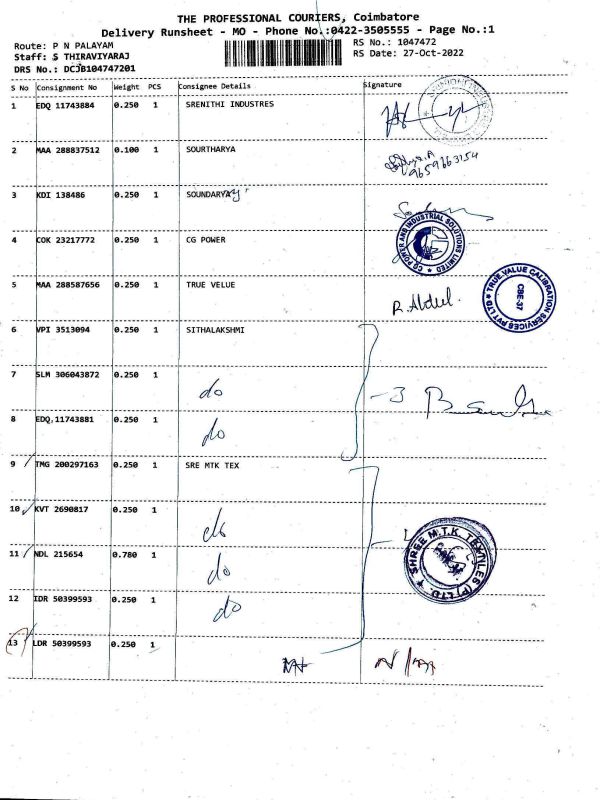 THE PROFESSIONAL COURIERS, Coimbatore
Delivery Runsheet - MO - Phone No.:0422-3505555 - Page No.:1
Route: P N PALAYAM
RS No.: 1047472
Staff: S THIRAVIYARAJ
RS Date: 27-Oct-2022
DRS No.: DCJB104747201
S No Consignment No Weight PCS Consignee Details Signature
1 EDQ 11743884 0.250 1 SRENITHI INDUSTRES
2 MAA 288837512 0.100 1 SOURTHARYA
9659663154
3 KDI 138486 0.250 1 SOUNDARYA
4 COK 23217772 0.250 1 CG POWER
CG POWER AND INDUSTRIAL SOLUTIONS LIMITED
5 MAA 288587656 0.250 1 TRUE VELUE
R. Abdul.
TRUE VALUE CALIBRATION SERVICES PVT LTD
CBE-37
6 VPI 3513094 0.250 1 SITHALAKSHMI
7 SLM 306043872 0.250 1 do
- 3
8 EDQ 11743881 0.250 1 do
9 TMG 200297163 0.250 1 SRE MTK TEX
10 KVT 2690817 0.250 1 do
11 NDL 215654 0.780 1 do
SHREE M.T.K. TEXTILES (P) LTD.
12 IDR 50399593 0.250 1 do
13 LDR 50399593 0.250 1